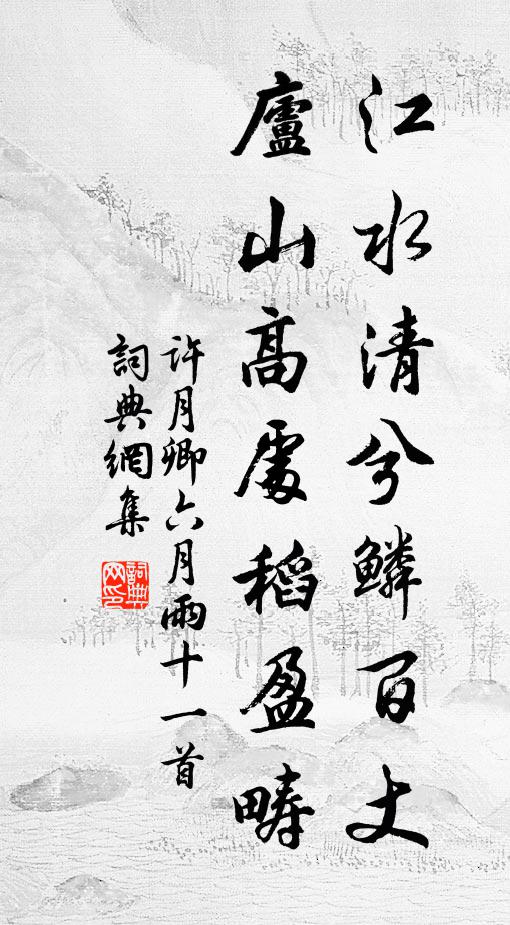 江水清兮鱗百丈
廬山高處稻盈疇
許月卿六月雨十一首
詞典網集
詞典網印